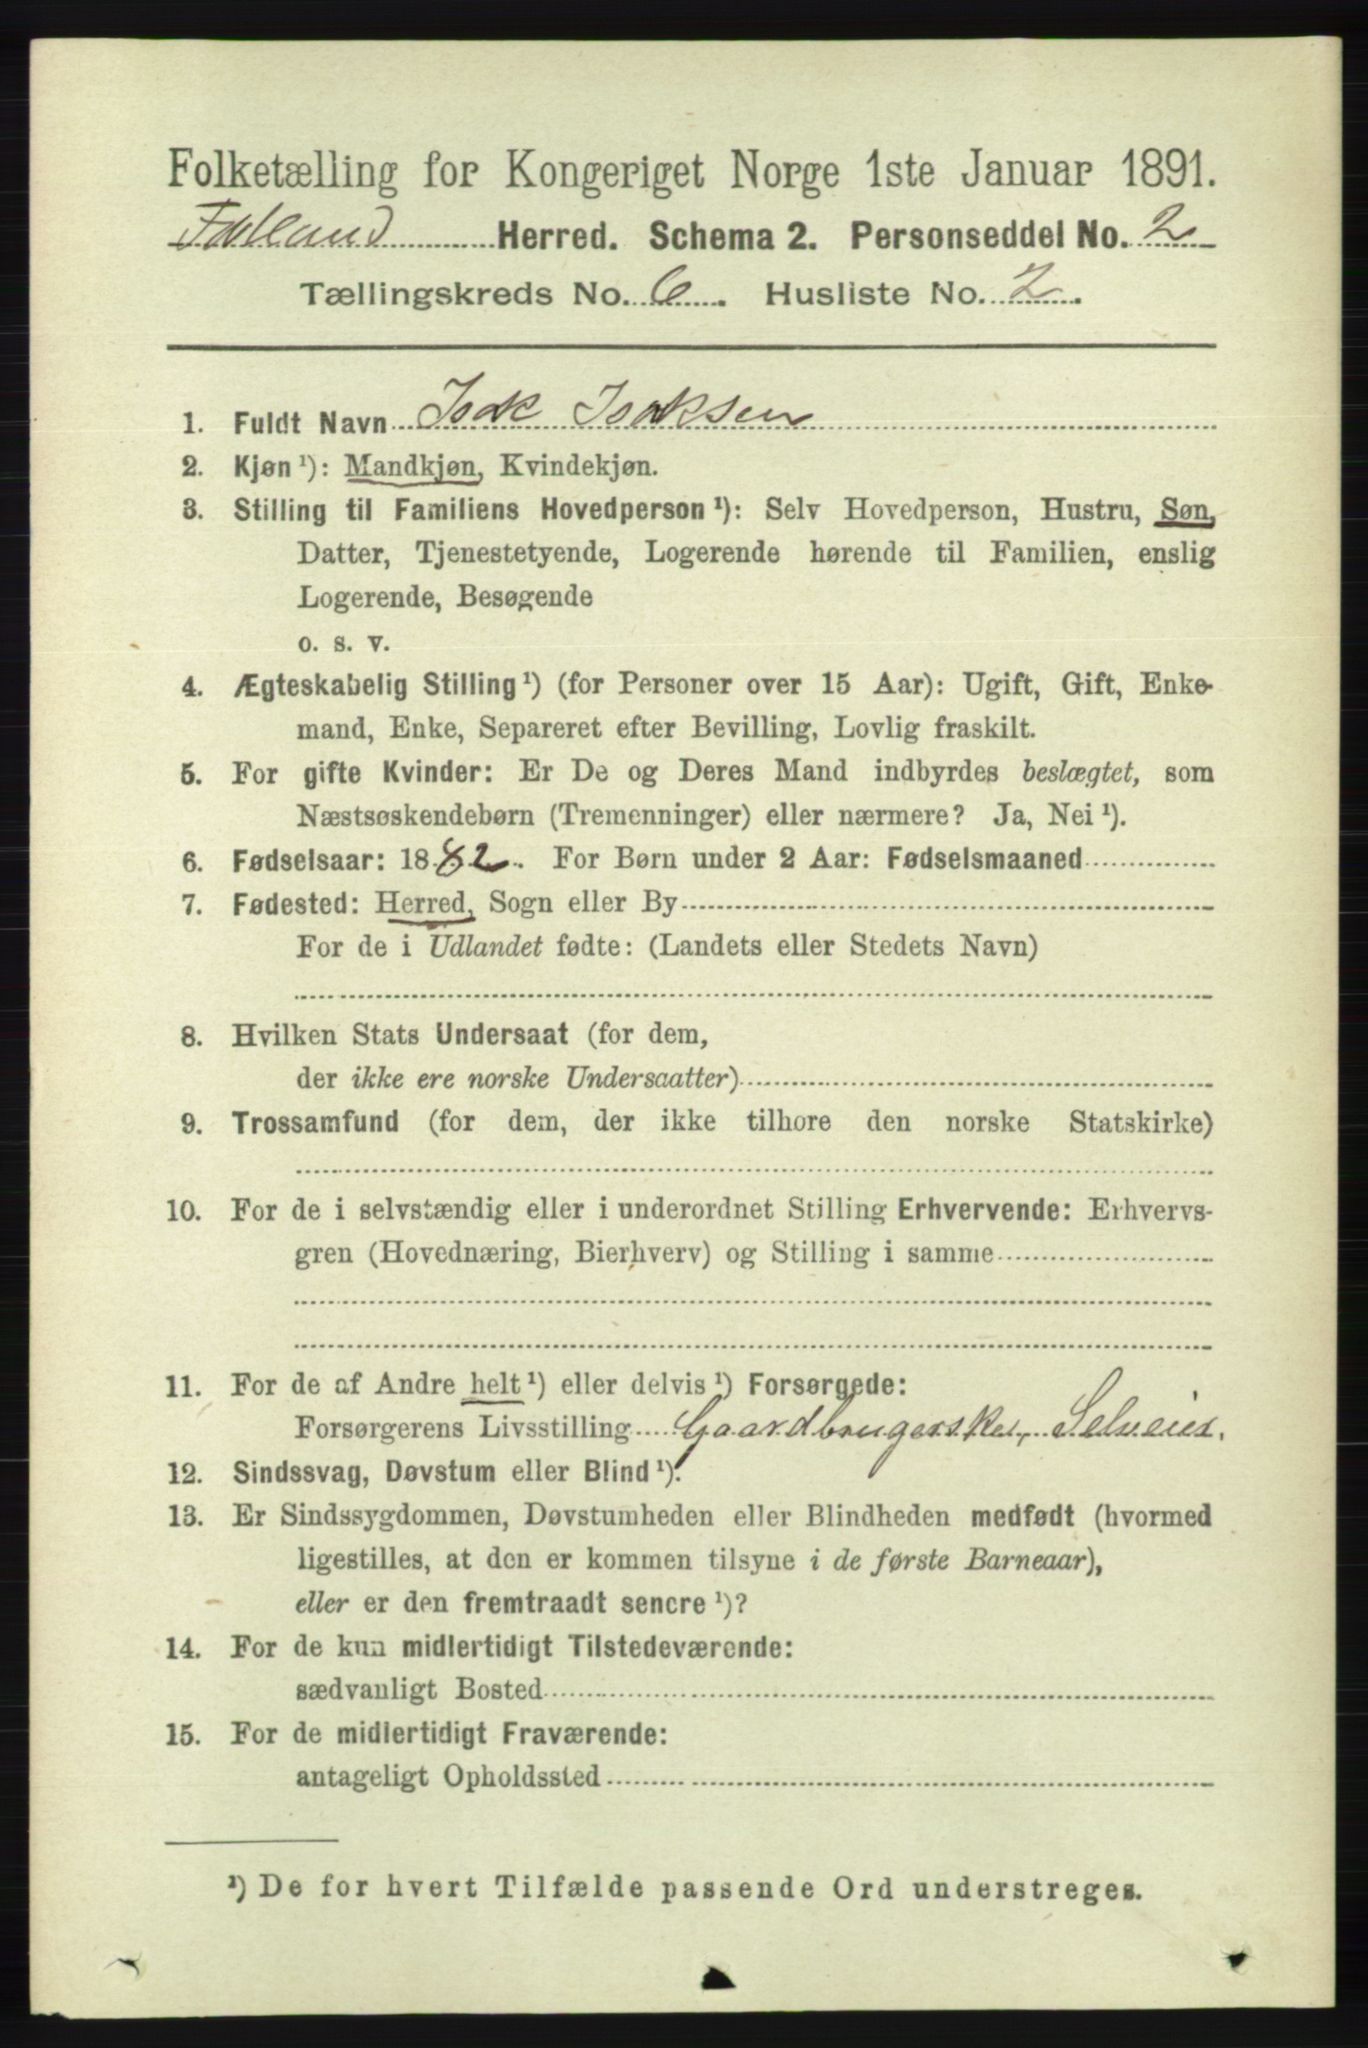 Folketælling for Kongeriget Norge 1ste Januar 1891.
Herred. Schema 2. Personseddel No. 2
Tællingskreds No. 6. Husliste No. 2.
1. Fuldt Navn Isak Isaksen
2. Kjøn ¹): Mandkjøn, Kvindekjøn.
3. Stilling til Familiens Hovedperson ¹): Selv Hovedperson, Hustru, Søn,
Datter, Tjenestetyende, Logerende hørende til Familien, enslig
Logerende, Besøgende
o. s. v.
4. Ægteskabelig Stilling ¹) (for Personer over 15 Aar): Ugift, Gift, Enke-
mand, Enke, Separeret efter Bevilling, Lovlig fraskilt.
5. For gifte Kvinder: Er De og Deres Mand indbyrdes beslægtet, som
Næstsøskendebørn (Tremenninger) eller nærmere? Ja, Nei ¹).
6. Fødselsaar: 1882. For Børn under 2 Aar: Fødselsmaaned
7. Fødested: Herred, Sogn eller By
For de i Udlandet fødte: (Landets eller Stedets Navn)
8. Hvilken Stats Undersaat (for dem,
der ikke ere norske Undersaatter)
9. Trossamfund (for dem, der ikke tilhore den norske Statskirke)
10. For de i selvstændig eller i underordnet Stilling Erhvervende: Erhvervs-
gren (Hovednæring, Bierhverv) og Stilling i samme
11. For de af Andre helt ¹) eller delvis ¹) Forsørgede:
Forsørgerens Livsstilling Gaardbrugerske, Selveier.
12. Sindssvag, Døvstum eller Blind ¹).
13. Er Sindssygdommen, Døvstumheden eller Blindheden medfødt (hvormed
ligestilles, at den er kommen tilsyne i de første Barneaar),
eller er den fremtraadt senere ¹)?
14. For de kun midlertidigt Tilstedeværende:
sædvanligt Bosted
15. For de midlertidigt Fraværende:
antageligt Opholdssted
¹) De for hvert Tilfælde passende Ord understreges.